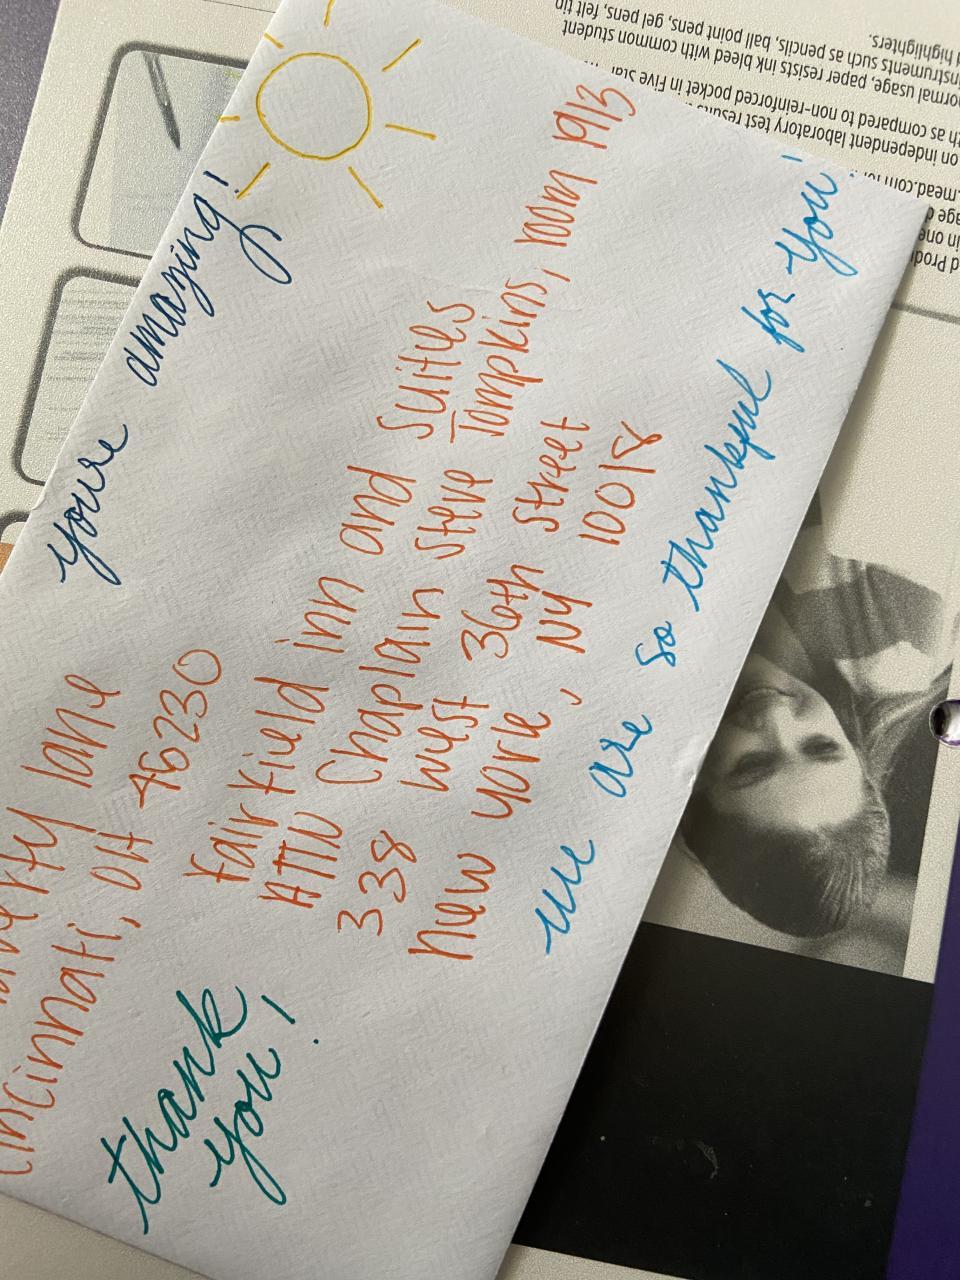 lane
Cincinnati, OH 45230
you're amazing!
Fairfield Inn and Suites
ATTN Chaplain Steve Tompkins, room 1913
338 West 36th Street
New York, NY 10018
thank
you!
we are so thankful for you!
instruments such as pencils, ball point pens, gel pens, felt tip
normal usage, paper resists ink bleed with common student
as compared to non-reinforced pocket in Five Star
on independent laboratory test results
mead.com